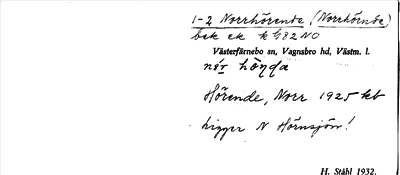 1-2 Norrhörende (Norrhörnde)
bek ek k 682 NO
Västerfärnebo sn, Vagnsbro hd, Västm. l.
nór hònda
Hörende, Norr 1925 kb
ligger N Hörnsjön!
H. Ståhl 1932.